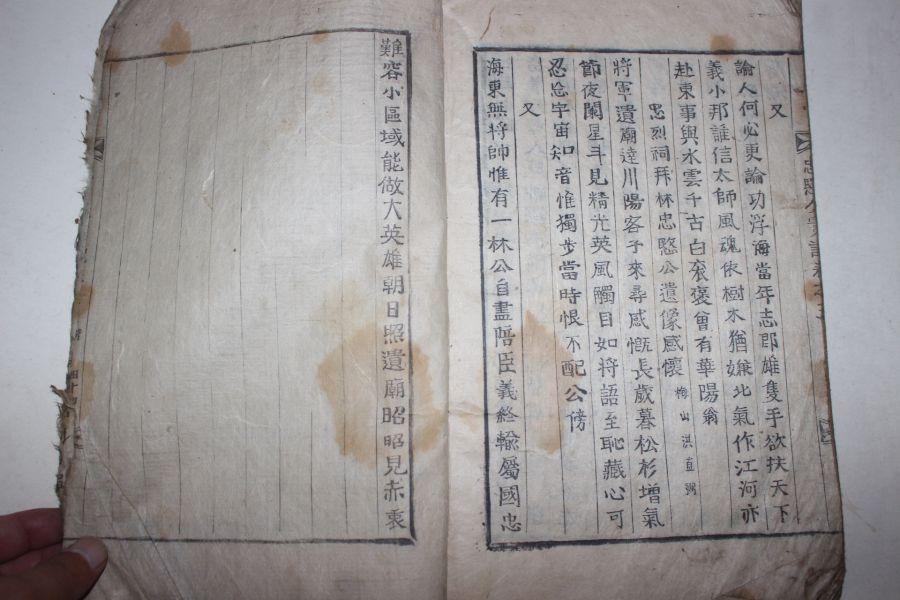 又
論人何必更論功浮海當年志雄隻手欲扶天下
義小邦誰信太師風魂依樹木猶嫌北氣作江河亦
赴東事與水雲千古白袞褒曾有華陽翁
忠烈祠拜林忠愍公遺像感懷 梅山洪直弼
將軍遺廟達川陽客子來尋感慨長歲暮松杉增氣
節夜闌星斗見精光英風觸目如將語至恥藏心可
忍忘宇宙知音惟獨步當時恨不配公傍
又
海東無將帥惟有一林公自盡陪臣義終輸屬國忠
難容小區域能做大英雄朝日照遺廟昭昭見赤衷